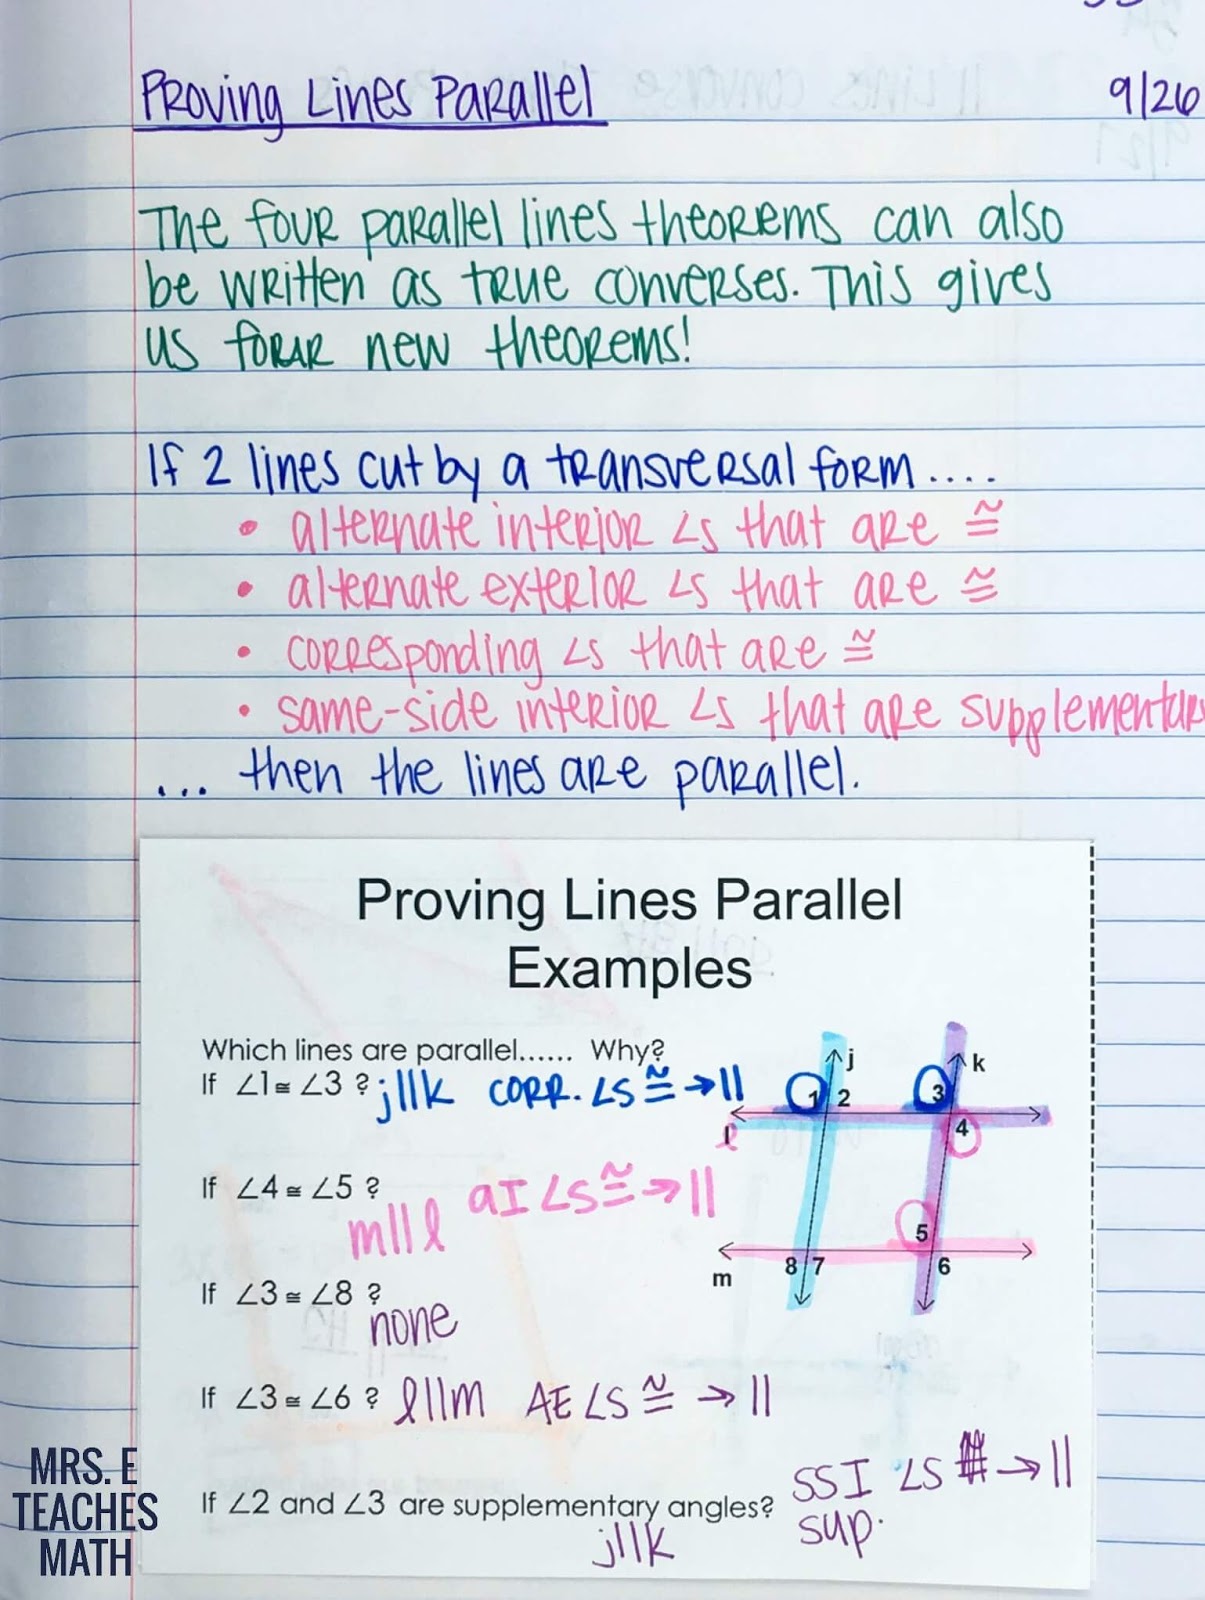 Proving Lines Parallel 9/26
The four parallel lines theorems can also
be written as true converses. This gives
us four new theorems!
If 2 lines cut by a transversal form....
• alternate interior ∠s that are ≅
• alternate exterior ∠s that are ≅
• corresponding ∠s that are ≅
• same-side interior ∠s that are supplementary
... then the lines are parallel.
Proving Lines Parallel
Examples
Which lines are parallel...... Why?
If ∠1 ≅ ∠3 ? j||k corr. ∠s ≅ → ||
If ∠4 ≅ ∠5 ?
m||l aI ∠s ≅ → ||
If ∠3 ≅ ∠8 ?
none
If ∠3 ≅ ∠6 ? l||m AE ∠s ≅ → ||
If ∠2 and ∠3 are supplementary angles? SSI ∠s sup. → ||
j||k
j
k
1 2
3
4
l
l
5
8 7
6
m
MRS. E
TEACHES
MATH